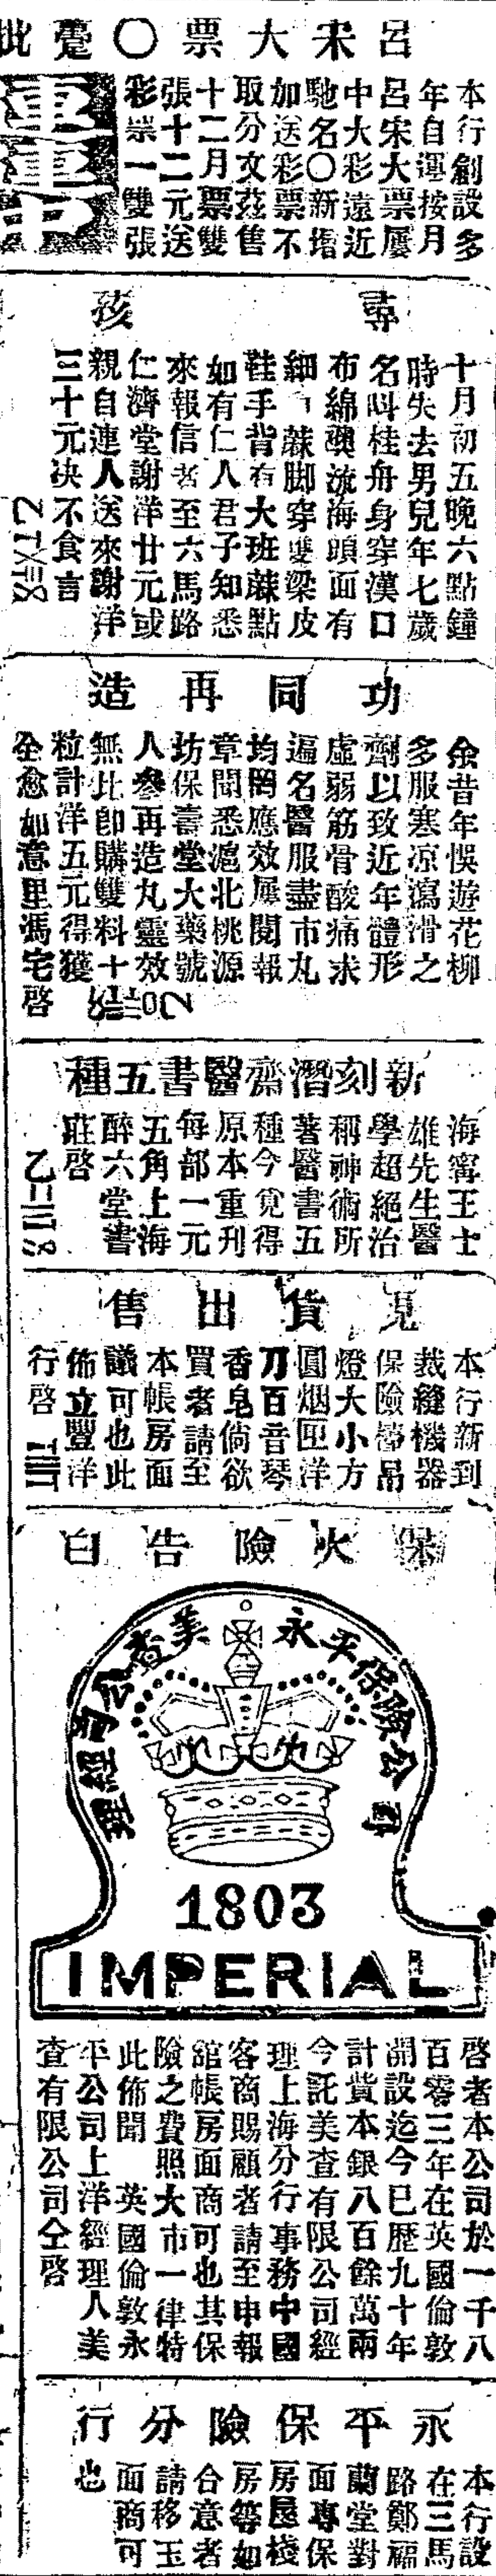 呂宋大票〇躉批
本行創設多
年自運按月
呂宋大票屢
中大彩遠近
馳名〇新增
加送彩票不
取分文茲售
十二月票雙
張十二元送
彩票一雙張
尋孩
十月初五晚六點鐘
時失去男兒年七歲
名呌桂舟身穿漢口
布綿襖流海頭面有
細蔴脚穿雙梁皮
鞋手背有大班蔴點
如有仁人君子知悉
來報信者至六馬路
仁濟堂謝洋廿元或
親自連人送來謝洋
三十元决不食言
功同再造
余昔年悞遊花柳
多服寒凉瀉滑之
劑以致近年體形
虛弱筋骨酸痛求
遍名醫服盡市丸
均罔應效屢閱報
章聞悉滬北桃源
坊保壽堂大藥號
人參再造丸靈效
無比卽購雙料十
粒計洋五元得獲
全愈如意里馮宅啓
新刻潛齋醫書五種
海寗王士
雄先生醫
學超絕治
稱神術所
著醫書五
種今覓得
原本重刊
每部一元
五角上海
醉六堂書
莊啓
現貨出售
本行新到
裁縫機器
保險檯吊
燈大小方
圓烟匣洋
刀百音琴
香皂倘欲
買者請至
本帳房面
議可也此
佈立豐洋
行啓
保火險告白
永平保險公司
美查公司經理
1803
IMPERIAL
啓者本公司於一千八
百零三年在英國倫敦
開設迄今已歷九十年
計貲本銀八百餘萬兩
今託美查有限公司經
理上海分行事務中國
客商賜顧者請至申報
舘帳房面商可也其保
險之費照大市一律特
此佈聞 英國倫敦永
平公司上洋經理人美
查有限公司仝啓
永平保險分行
本行設
在三馬
路鄭福
蘭堂對
面專保
房屋棧
房等如
合意者
請移玉
面商可
也